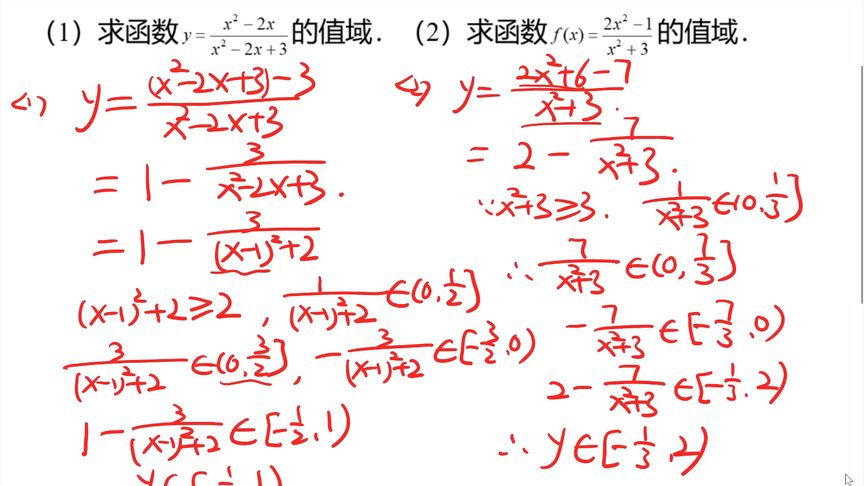 (1) 求函数 y = (x² − 2x)/(x² − 2x + 3) 的值域. (2) 求函数 f(x) = (2x² − 1)/(x² + 3) 的值域.
<1> y = ((x²-2x+3)-3)/(x²-2x+3)
= 1 - 3/(x²-2x+3).
= 1 - 3/((x-1)²+2)
(x-1)²+2 ≥ 2, 1/((x-1)²+2) ∈ (0, 1/2]
3/((x-1)²+2) ∈ (0, 3/2], -3/((x-1)²+2) ∈ [-3/2, 0)
1 - 3/((x-1)²+2) ∈ [-1/2, 1)
<2> y = (2x²+6-7)/(x²+3).
= 2 - 7/(x²+3).
∵ x²+3 ≥ 3. 1/(x²+3) ∈ (0, 1/3]
∴ 7/(x²+3) ∈ (0, 7/3]
-7/(x²+3) ∈ [-7/3, 0)
2 - 7/(x²+3) ∈ [-1/3, 2)
∴ y ∈ [-1/3, 2)